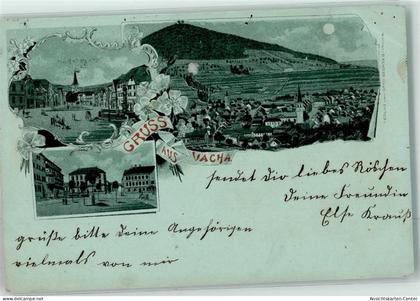 GRUSS
AUS
VACHA
sendet Dir liebes Röschen
Deine Freundin
Else Krauß
grüße bitte Deine Angehörigen
vielmals von mir
www.ansichtskarten-center.de
Ansichtskarten-Center